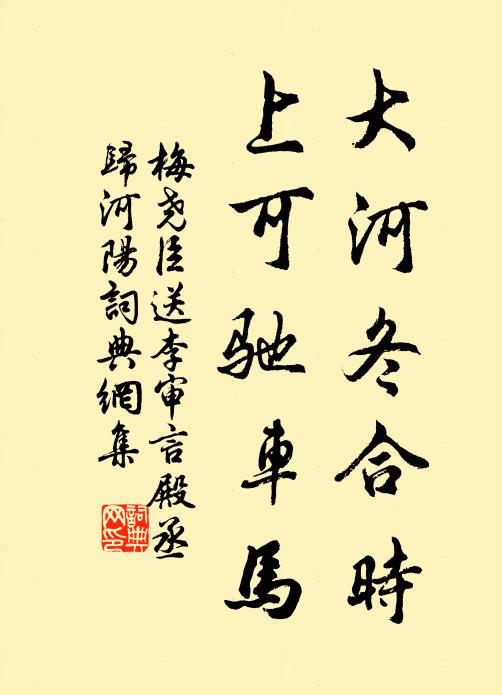 大河冬合時
上可馳車馬
梅堯臣送李审言殿丞
歸河陽詞典網集
詞典
网印